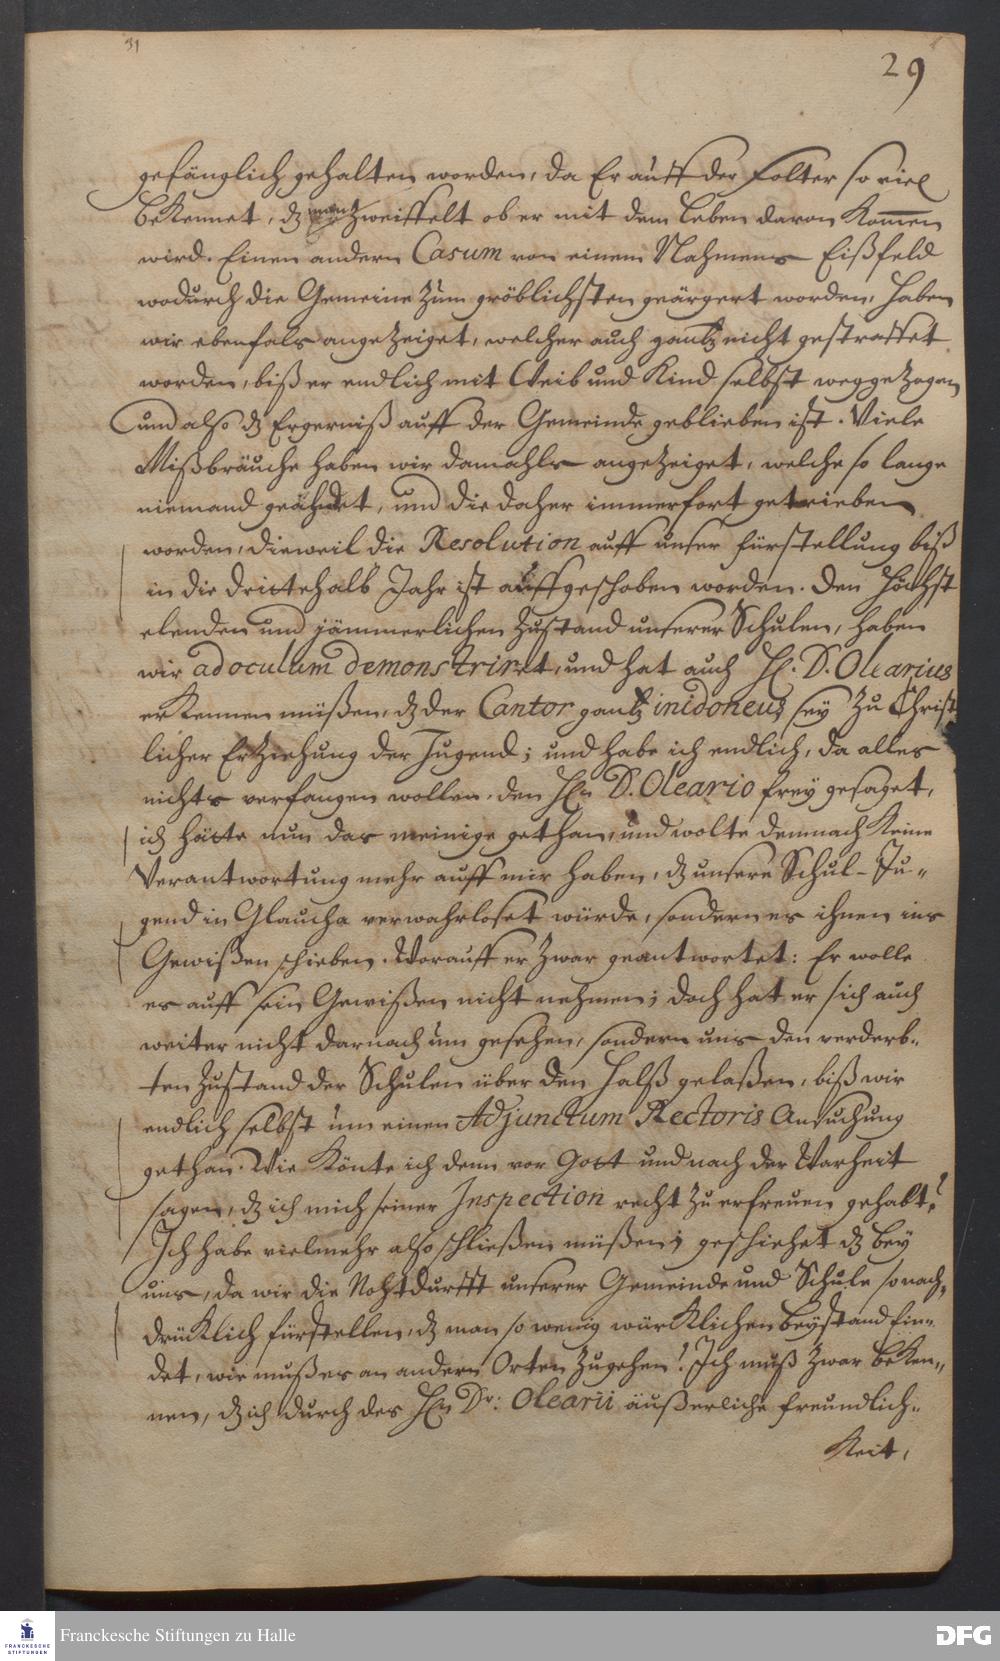 31
29
gefänglich gehalten worden, da Er auff der Folter so viel
bekennet, dz man zweiffelt ob er mit dem Leben davon kommen
wird. Einen andern Casum von einem Nahmens Eißfeld
wodurch die Gemeine zum gröblichsten geärgert worden, haben
wir ebenfals angezeiget, welcher auch gantz nicht gestraffet
worden, biß er endlich mit Weib und Kind selbst weggezogen
und also dz Ergerniß auff der Gemeinde geblieben ist. Viele
Mißbräuche haben wir damahls angezeiget, welche so lange
niemand geahndet, und die daher immerfort getrieben
worden, dieweil die Resolution auff unser fürstellung biß
in die drittehalb Jahr ist auffgeschoben worden. Den höchst
elenden und jämmerlichen Zustand unserer Schulen, haben
wir ad oculum demonstriret, und hat auch H. D. Olearius
erkennen müßen, dz der Cantor gantz inidoneus sey zu Christ
licher Erziehung der Jugend; und habe ich endlich, da alles
nichts verfangen wollen, den Hn D. Oleario frey gesaget,
ich hätte nun das meinige gethan, und wolte demnach keine
Verantwortung mehr auff mir haben, dz unsere Schul-Ju-
gend in Glaucha verwahrloset würde, sondern es ihnen ins
Gewißen schieben. Worauff er zwar geantwortet: Er wolle
es auff sein Gewißen nicht nehmen; doch hat er sich auch
weiter nicht darnach üm gesehen, sondern uns den verderb-
ten Zustand der Schulen über den Halß gelaßen, biß wir
endlich selbst üm einen Adjunctum Rectoris Ansuchung
gethan. Wie könte ich denn vor Gott und nach der Warheit
sagen, dz ich mich seiner Inspection recht zu erfreuen gehabt?
Ich habe vielmehr also schließen müßen; geschiehet dz bey
uns, da wir die Nohtdurfft unserer Gemeinde und Schule so nach-
drücklich fürstellen, dz man so wenig würcklichen Beystand fin-
det, wie muß es an andern Orten zugehen? Ich muß zwar beken-
nen, dz ich durch des Hn Dr: Olearii äußerliche freundlich-
keit,
Franckesche Stiftungen zu Halle
FRANCKESCHE
STIFTUNGEN
DFG